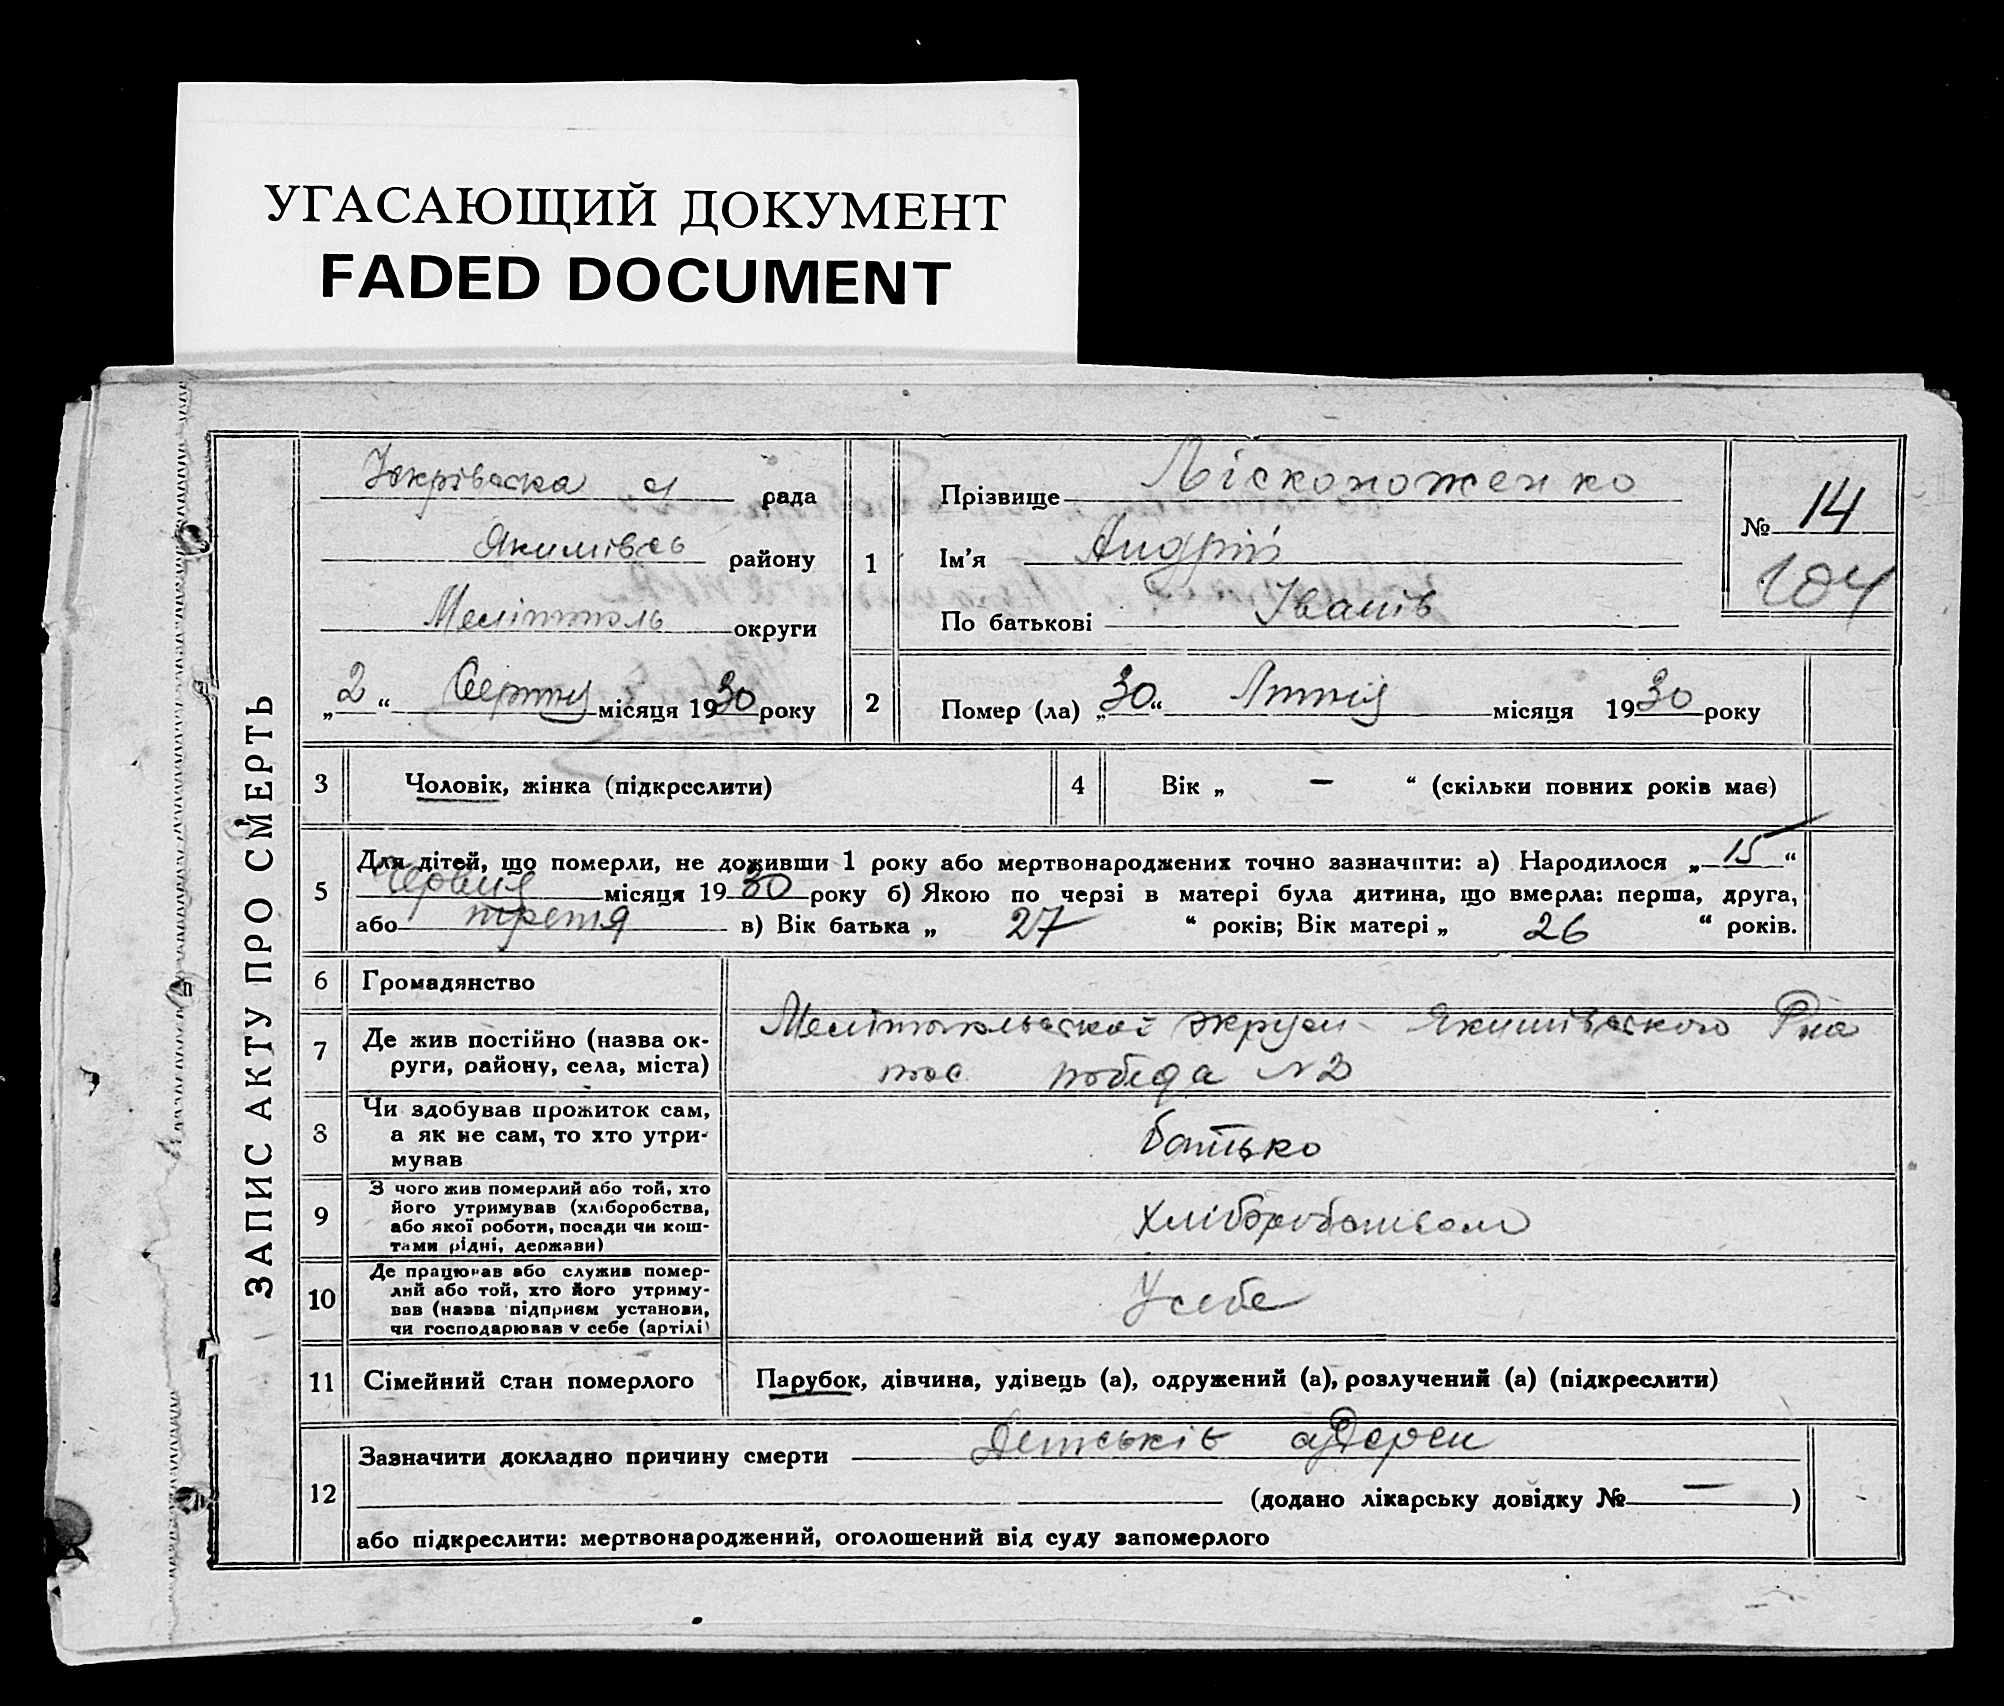 УГАСАЮЩИЙ ДОКУМЕНТ
FADED DOCUMENT
ЗАПИС АКТУ ПРО СМЕРТЬ
рада
району
Меліттполь округи
„2“ Серпня місяця 1930 року
1
Прізвище Лісконоженко
Ім'я Андрій
По батькові Іванів
№ 14
104
2
Помер (ла) „30“ Липня місяця 1930 року
3 Чоловік, жінка (підкреслити)
4 Вік „ — “ (скільки повних років має)
5 Для дітей, що померли, не доживши 1 року або мертвонароджених точно зазначити: а) Народилося „15“
Червня місяця 1930 року б) Якою по черзі в матері була дитина, що вмерла: перша, друга,
або третя в) Вік батька „ 27 “ років; Вік матері „ 26 “ років.
6 Громадянство
7 Де жив постійно (назва ок-
руги, району, села, міста)
Мелітопольської округи Якимівського Р-на
пос победа №2
8 Чи здобував прожиток сам,
а як не сам, то хто утри-
мував
батько
9 З чого жив померлий або той, хто
його утримував (хліборобства,
або якої роботи, посади чи кош-
тами рідні, держави)
хліборобством
10 Де працював або служив помер-
лий або той, хто його утриму-
вав (назва підприєм установи,
чи господарював у себе (артілі)
У себе
11 Сімейний стан померлого
Парубок, дівчина, удівець (а), одружений (а), розлучений (а) (підкреслити)
12 Зазначити докладно причину смерти
(додано лікарську довідку № — )
або підкреслити: мертвонароджений, оголошений від суду запомерлого